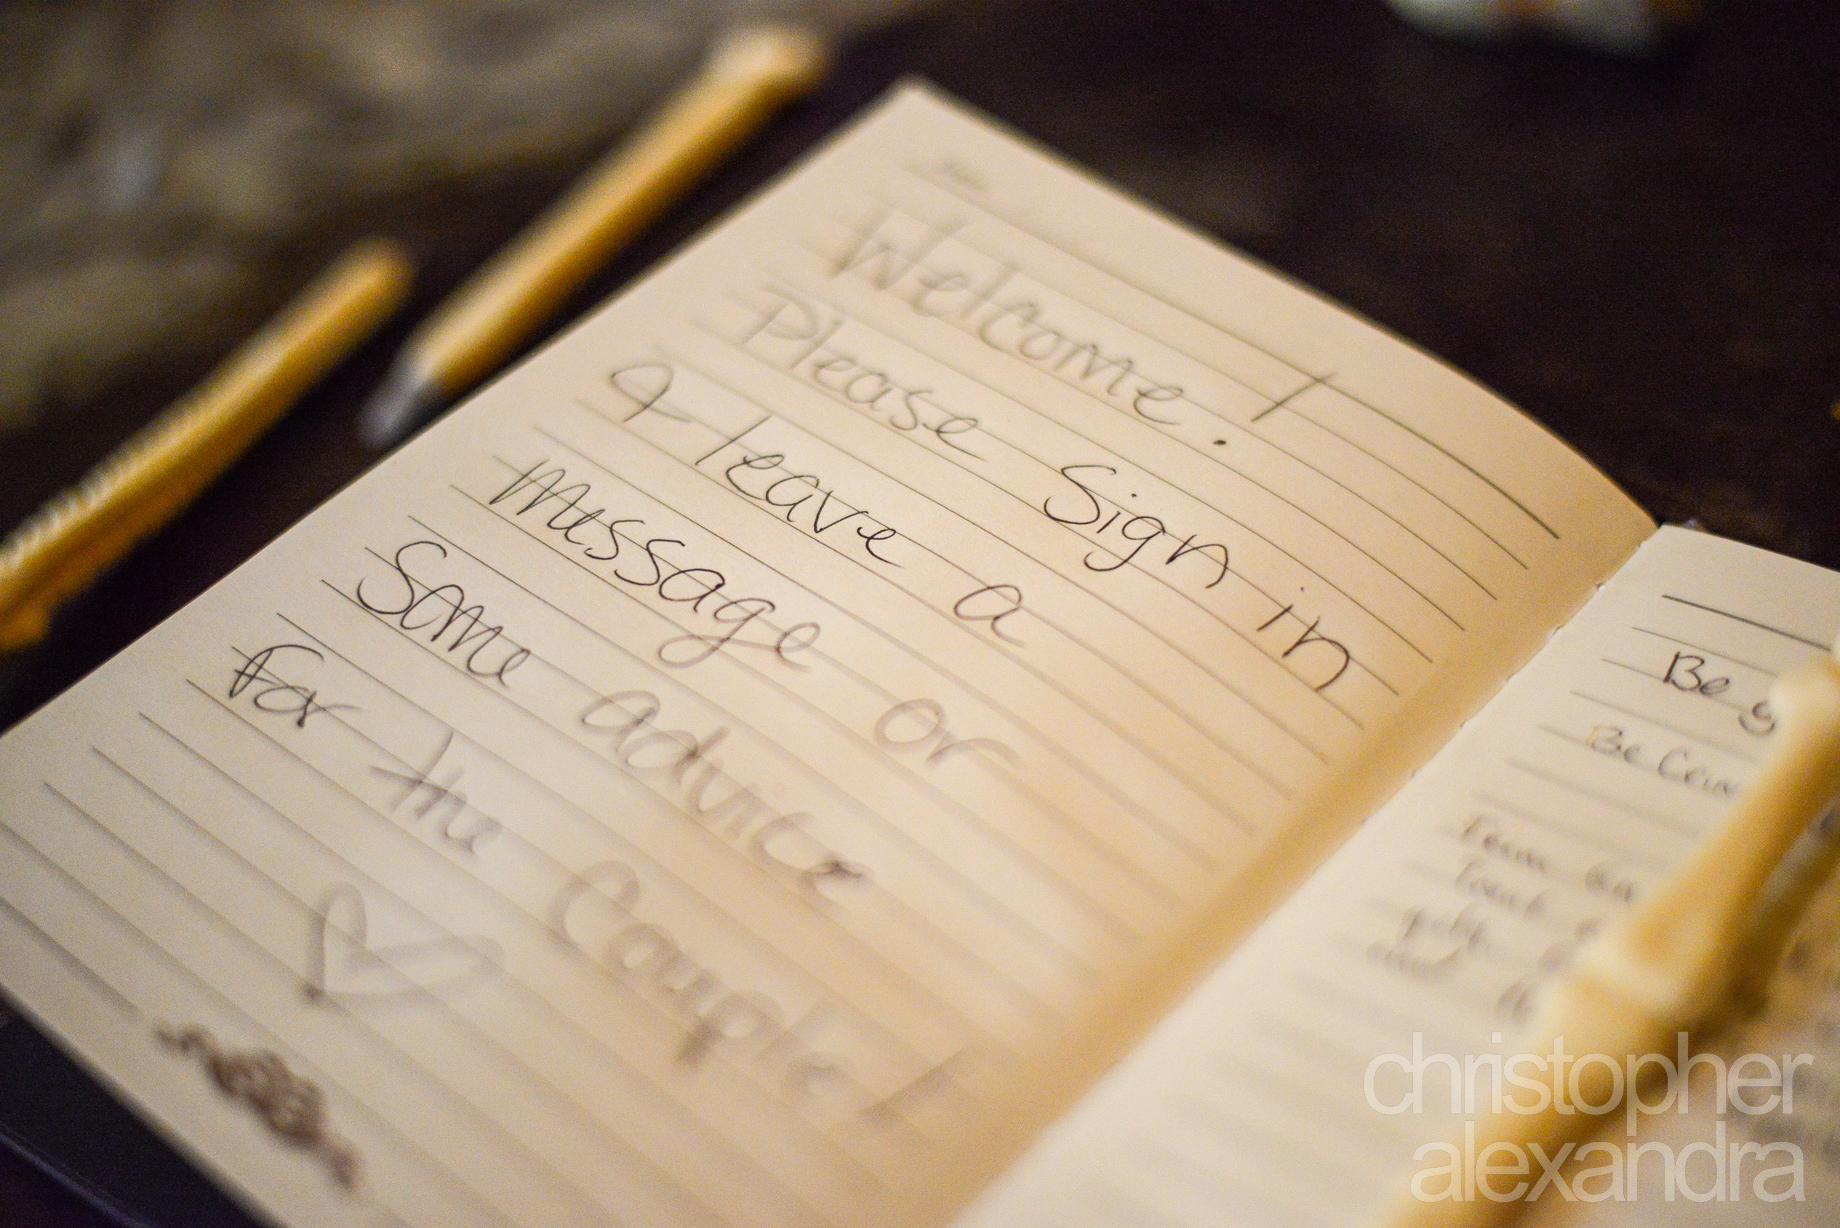 Welcome!
Please Sign in
& leave a
message or
Some advice
for the Couple!
Be
Be
christopher
alexandra